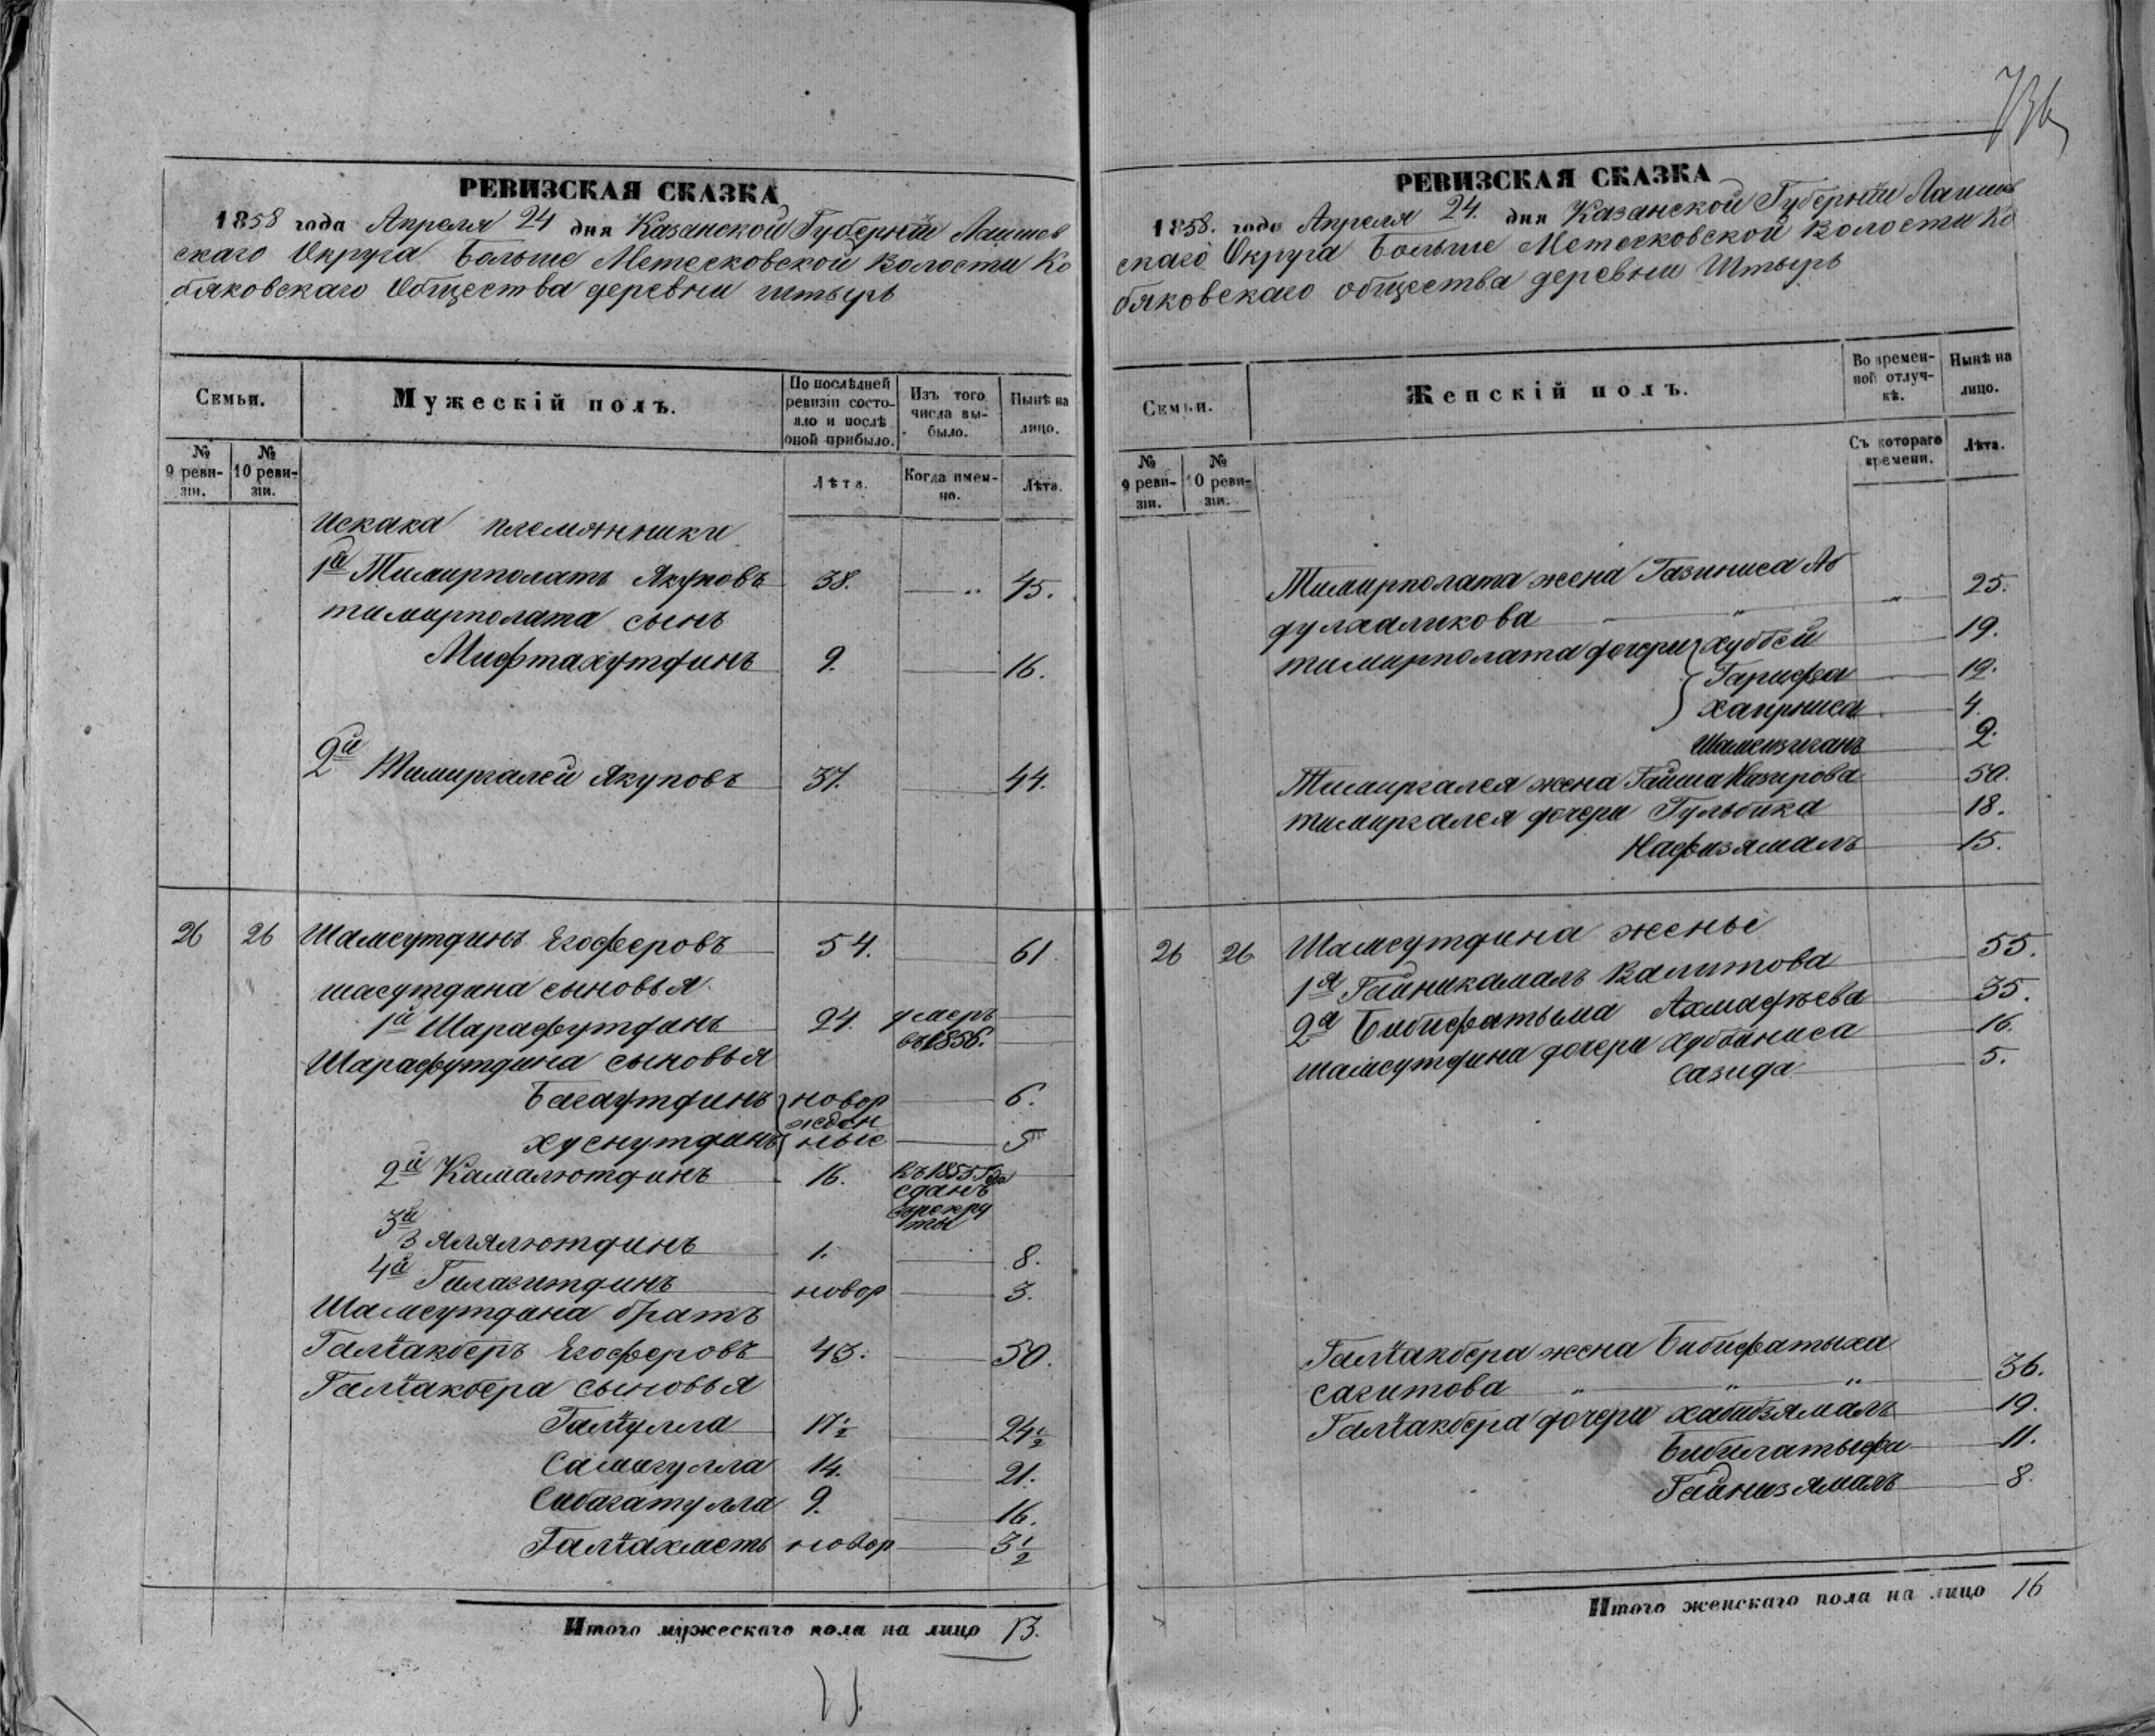 РЕВИЗСКАЯ СКАЗКА
1858 года Апреля 24 дня Казанской Губерніи Лаишев
скаго Округа Больше Метесковской Волости Ко
бяковскаго Общества деревни Штырь
Семьи.
Мужескій полъ.
По послѣдней ревизіи состояло и послѣ оной прибыло.
Изъ того числа выбыло.
Нынѣ на лицо.
№ 9 ревизіи.
№ 10 ревизіи.
Лѣта.
Когда именно.
Лѣта.
Искака племянники
1й Тимирполатъ Якуповъ 38. 45.
тимирполата сынъ
Мифтахутдинъ 9. 16.
2й Тимиргалей Якуповъ 37. 44.
26 26 Шамсутдинъ Егоферовъ 54. 61
шасутдина сыновья
1й Шарафутдинъ 24. умеръ
въ 1856.
Шарафутдина сыновья
Багаутдинъ новор 6.
жден
Хуснутдинъ ные 5
2й Камалютдинъ 16. Въ 1855 Года
сданъ
в рекру
ты
3й Зялялютдинъ 1. 8.
4й Гилазитдинъ новор 3.
Шамсутдина братъ
Галіакберъ Егоферовъ 43. 50.
Галіакбера сыновья
Галіулла 17½ 24½
Самигулла 14. 21.
Сибагатулла 9. 16.
Галіахметъ новор 3½
Итого мужескаго пола на лицо 13.
РЕВИЗСКАЯ СКАЗКА
1858. года Апреля 24. дня Казанской Губерніи Лаишев
скаго Округа Больше Метесковской Волости Ко
бяковскаго общества деревни Штырь
Семьи.
Женскій полъ.
Во временной отлучкѣ.
Нынѣ на лицо.
№ 9 ревизіи.
№ 10 ревизіи.
Съ котораго времени.
Лѣта.
Тимирполата жена Газиниса Аб
дулхаликова 25.
тимирполата дочери Хуббей 19.
Гарифа 12.
Хаирниса 4.
Шамсизиганъ 2.
Тимиргалея жена Гайша Назирова 50.
тимиргалея дочери Гульбика 18.
Нафизямалъ 15.
26 26 Шамсутдина жены
1я Гайникамалъ Валитова 55.
2я Бибифатыма Ахмафѣева 35.
шамсутдина дочери Хуббиниса 16.
Сазида 5.
Галіакбера жена Бибифатыха
Сагитова 36.
Галіакбера дочери Хабибзямалъ 19.
Бибилатыфа 11.
Гайнизямалъ 8.
Итого женскаго пола на лицо 16